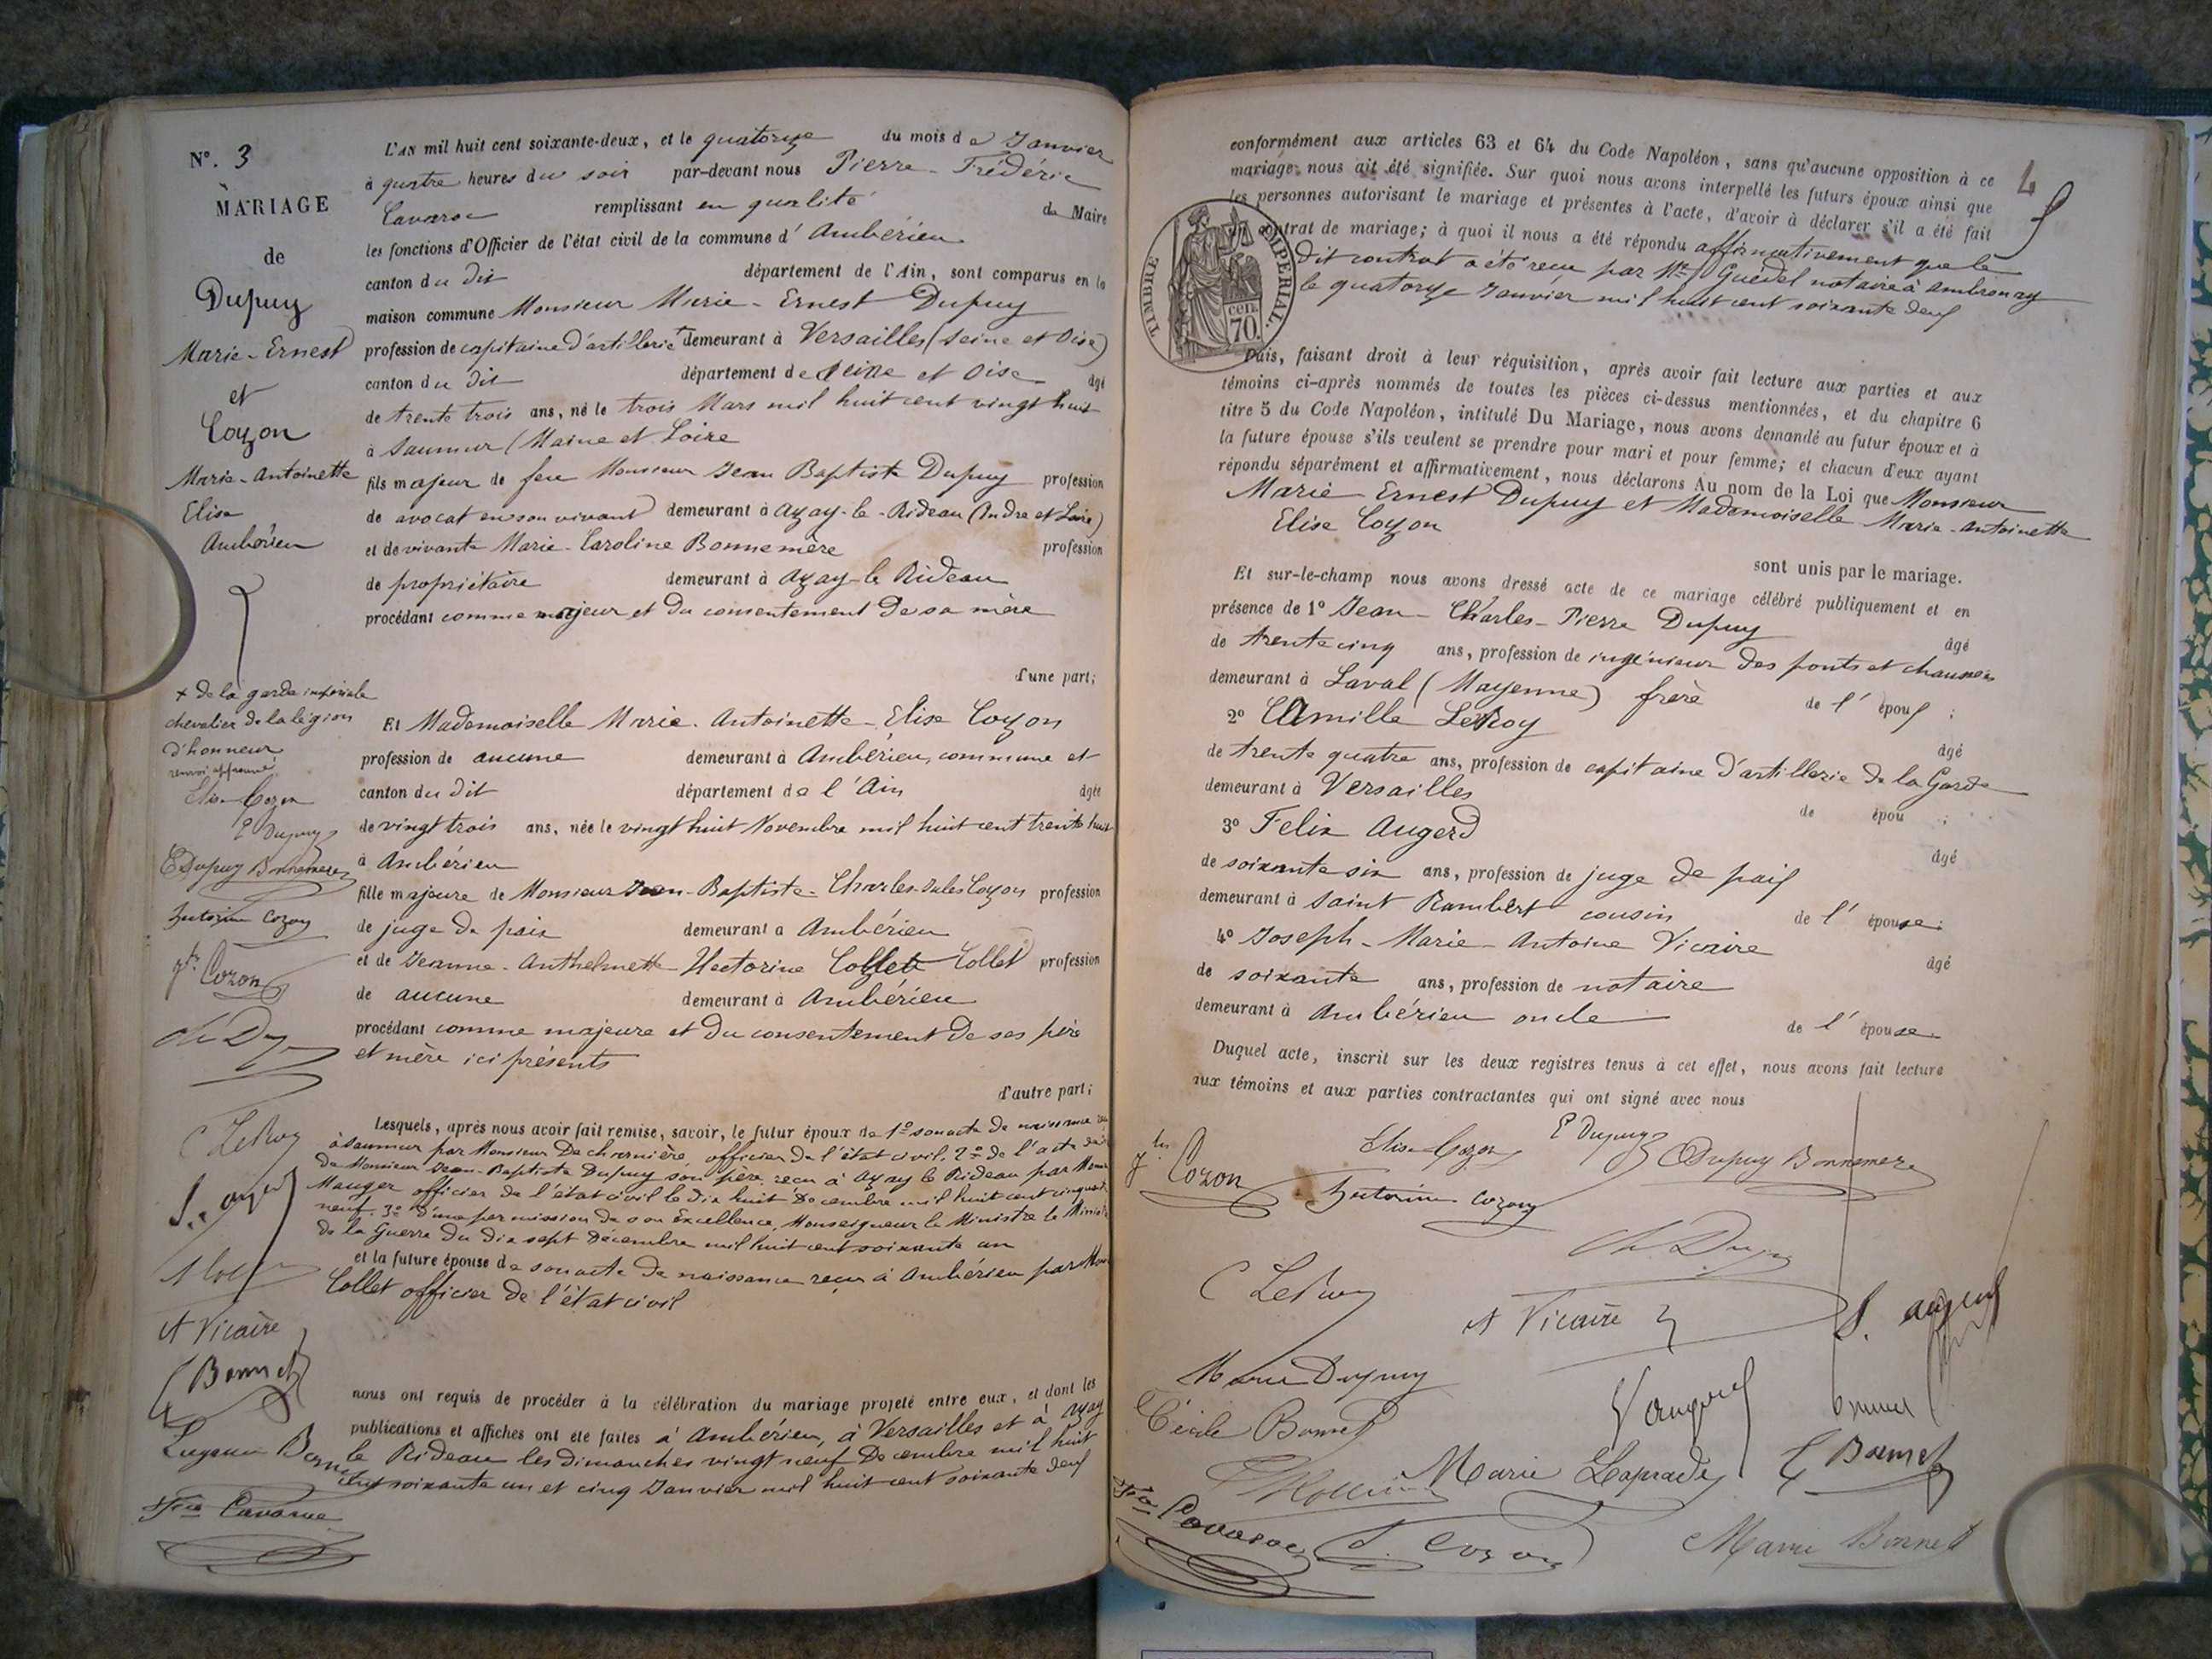 N°. 3
MARIAGE
de
Dupuy
Marie-Ernest
et
Cozon
Marie-Antoinette
Elise
Ambérieu
L'AN mil huit cent soixante-deux, et le quatorze du mois de Janvier
à quatre heures du soir par-devant nous Pierre-Frédéric
Cavaroc remplissant en qualité de Maire
les fonctions d'Officier de l'état civil de la commune d'Ambérieu
canton du dit département de l'Ain, sont comparus en la
maison commune Monsieur Marie-Ernest Dupuy
profession de capitaine d'artillerie + demeurant à Versailles (Seine et Oise)
canton du dit département de Seine et Oise âgé
de trente trois ans, né le trois Mars mil huit cent vingt huit
à Saumur (Maine et Loire
fils majeur de feu Monsieur Jean Baptiste Dupuy profession
de avocat en son vivant demeurant à Azay-le-Rideau (Indre et Loire)
et de vivante Marie-Caroline Bonnemère profession
de propriétaire demeurant à Azay-le Rideau
procédant comme majeur et du consentement de sa mère
d'une part;
+ de la garde impériale
chevalier de la légion
d'honneur
renvoi approuvé
Elise Cozon
E Dupuy
C Dupuy Bonnemere
Hectorine Cozon
Cozon
C LeRoy
A Vicaire
Bonnet
Eugenie Bonnet
Cavaroc
Et Mademoiselle Marie-Antoinette-Elise Cozon
profession de aucune demeurant à Ambérieu, commune et
canton du dit département de l'Ain âgée
de vingt trois ans, née le vingt huit Novembre mil huit cent trente huit
à Ambérieu
fille majeure de Monsieur Jean-Baptiste-Charles-Jules Cozon profession
de juge de paix demeurant à Ambérieu
et de Jeanne-Anthelmette-Hectorine Collet profession
de aucune demeurant à Ambérieu
procédant comme majeure et du consentement de ses père
et mère ici présents
d'autre part;
Lesquels, après nous avoir fait remise, savoir, le futur époux de 1° son acte de naissance
à Saumur par Monsieur Decharnière officier de l'état civil, 2° de l'acte de
de Monsieur Jean-Baptiste Dupuy son père reçu à Azay le Rideau par
Mauger officier de l'état civil le dix huit Décembre mil huit cent cinquante
neuf. 3° d'une permission de son Excellence, Monseigneur le Ministre le
de la Guerre du dix sept Décembre mil huit cent soixante un
et la future épouse de son acte de naissance reçu à Ambérieu par
Collet officier de l'état civil
nous ont requis de procéder à la célébration du mariage projeté entre eux, et dont les
publications et affiches ont été faites à Ambérieu, à Versailles et à Azay
le Rideau les dimanches vingt neuf Décembre mil huit
cent soixante un et cinq Janvier mil huit cent soixante deux
4
conformément aux articles 63 et 64 du Code Napoléon, sans qu'aucune opposition à ce
mariage nous ait été signifiée. Sur quoi nous avons interpellé les futurs époux ainsi que
les personnes autorisant le mariage et présentes à l'acte, d'avoir à déclarer s'il a été fait
contrat de mariage; à quoi il nous a été répondu affirmativement que le
dit contrat a été reçu par Me Guédel notaire à Ambronay
le quatorze Janvier mil huit cent soixante deux
TIMBRE IMPERIAL.
cen. 70.
Puis, faisant droit à leur réquisition, après avoir fait lecture aux parties et aux
témoins ci-après nommés de toutes les pièces ci-dessus mentionnées, et du chapitre 6
titre 5 du Code Napoléon, intitulé Du Mariage, nous avons demandé au futur époux et à
la future épouse s'ils veulent se prendre pour mari et pour femme; et chacun d'eux ayant
répondu séparément et affirmativement, nous déclarons Au nom de la Loi que Monsieur
Marie Ernest Dupuy et Mademoiselle Marie-Antoinette
Elise Cozon
sont unis par le mariage.
Et sur-le-champ nous avons dressé acte de ce mariage célébré publiquement et en
présence de 1° Jean-Charles-Pierre Dupuy âgé
de trente cinq ans, profession de ingénieur des ponts et chaussées
demeurant à Laval (Mayenne) frère de l'époux;
2° Camille LeRoy âgé
de trente quatre ans, profession de capitaine d'artillerie de la Garde
demeurant à Versailles de épou ;
3° Felix Augerd âgé
de soixante six ans, profession de juge de paix
demeurant à Saint Rambert cousin de l'épouse;
4° Joseph-Marie-Antoine Vicaire âgé
de soixante ans, profession de notaire
demeurant à Ambérieu oncle de l'épouse
Duquel acte, inscrit sur les deux registres tenus à cet effet, nous avons fait lecture
aux témoins et aux parties contractantes qui ont signé avec nous
Elise Cozon E Dupuy C Dupuy Bonnemere
Cozon Hectorine Cozon
C LeRoy A Vicaire
Marie Dupuy
Cécile Bonnet
Marie Laprade Bonnet
Cavaroc Cozon Marie Bonnet